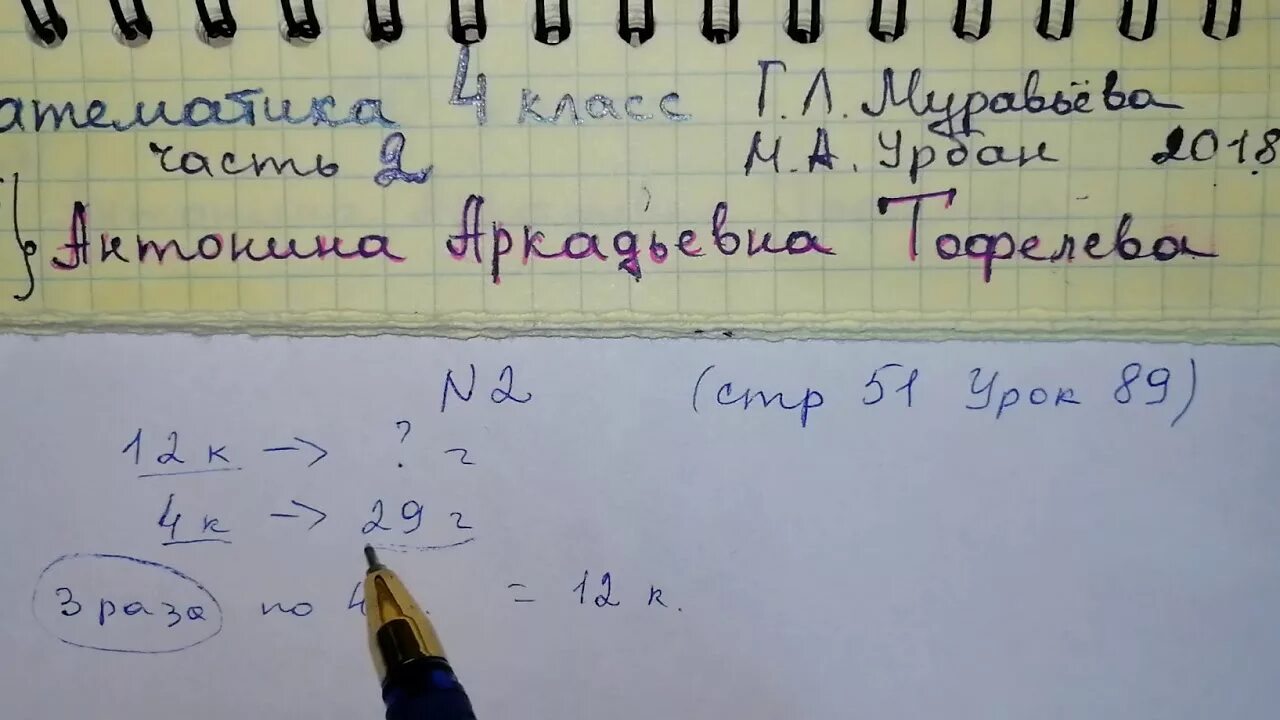 атематика 4 класс Г.Л. Муравьёва
часть 2 М.А. Урбан 2018
Антонина Аркадьевна Тофелева
N 2 (стр 51 Урок 89)
12 к → ? г
4 к → 29 г
3 раза по 4 = 12 к.